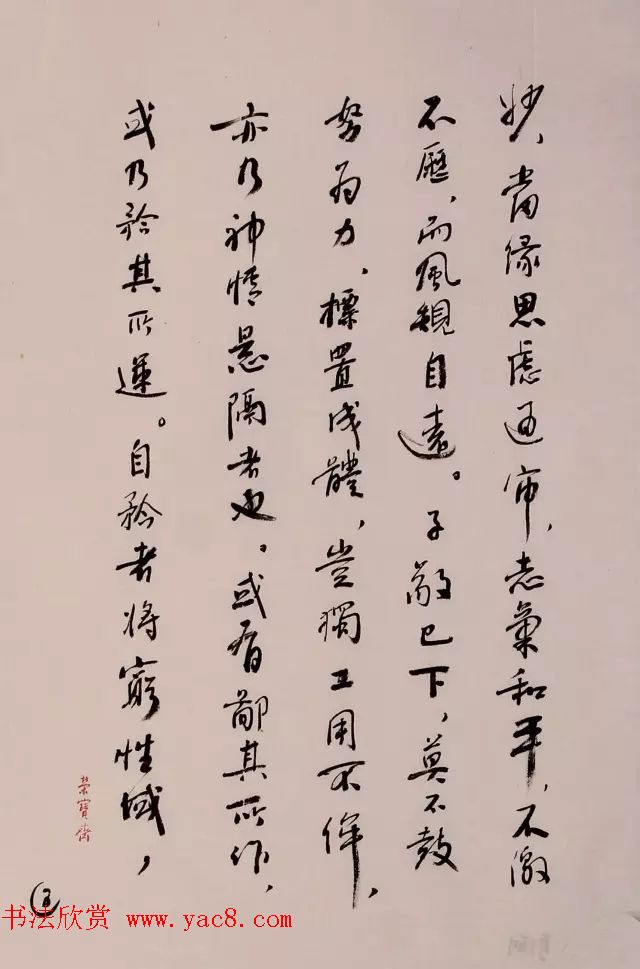 妙，當緣思慮通審，志氣和平，不激
不厲，而風規自遠。子敬已下，莫不鼓
努為力，標置成體，豈獨工用不侔，
亦乃神情懸隔者也。或有鄙其所作，
或乃矜其所運。自矜者將窮性域，
榮寶齋
3
书法欣赏 www.yac8.com